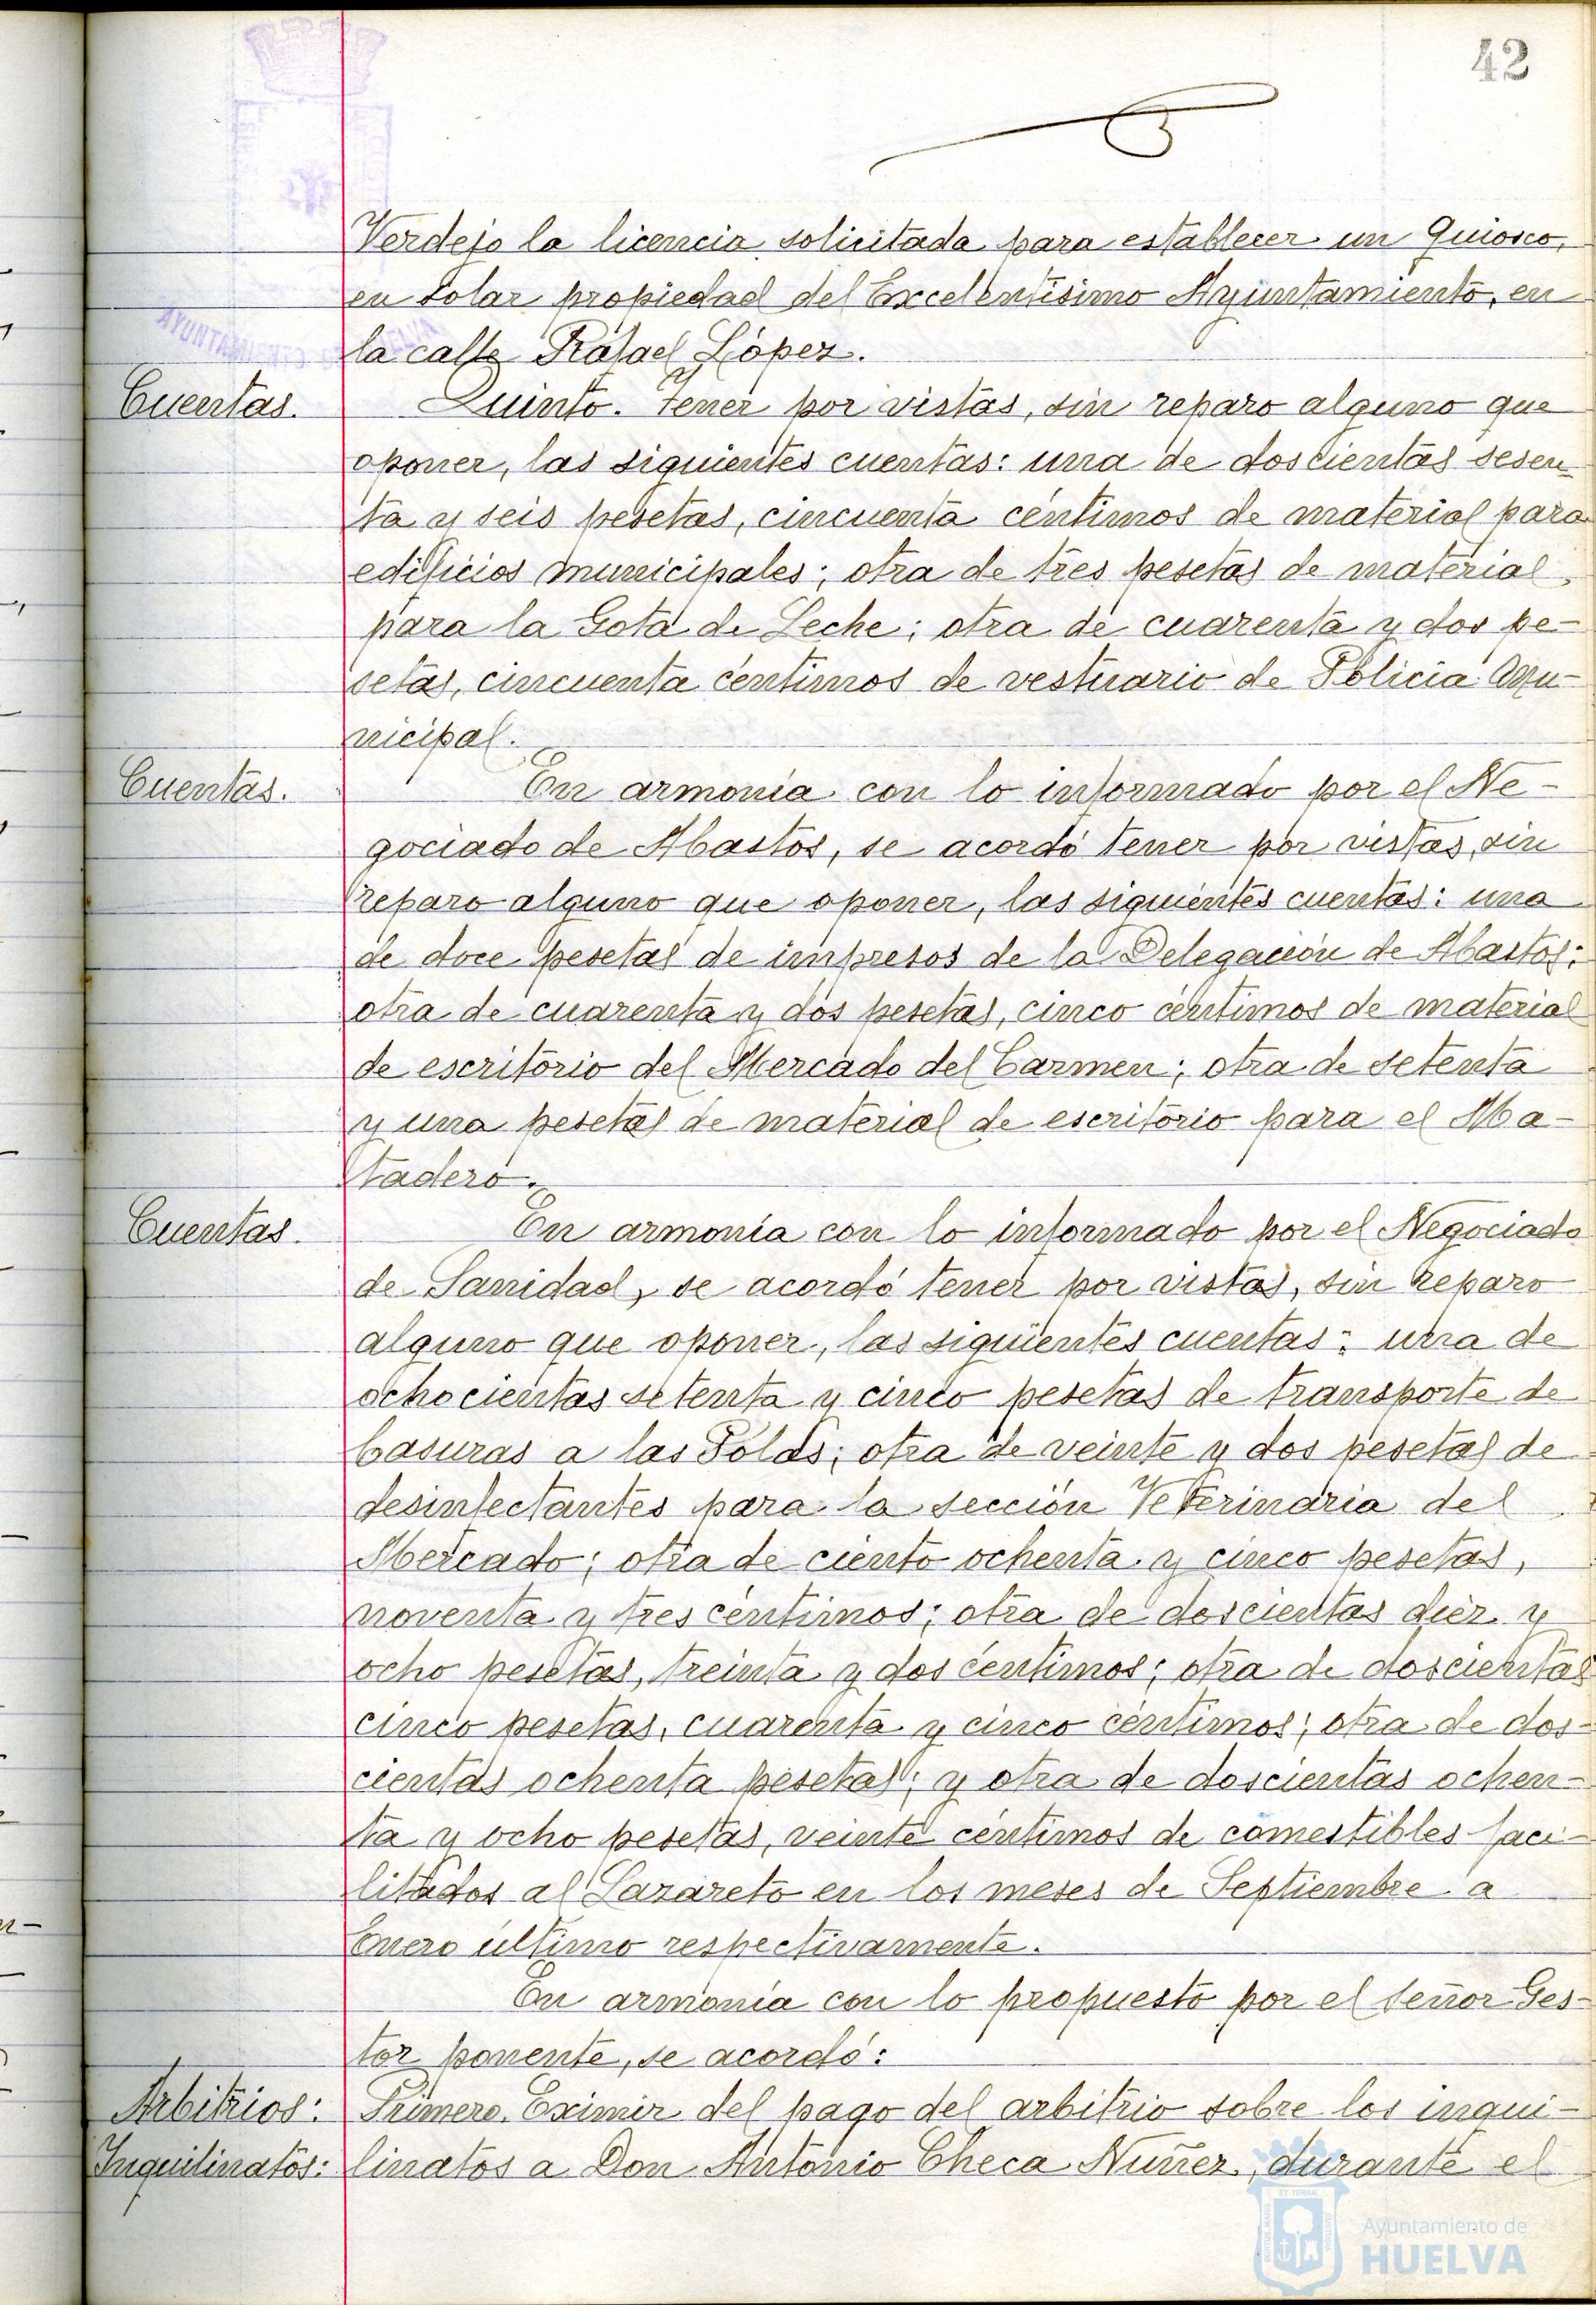 42
Verdejo la licencia solicitada para establecer un Quiosco,
en solar propiedad del Excelentísimo Ayuntamiento, en
la calle Rafael López.
Cuentas. Quinto. Tener por vistas, sin reparo alguno que
oponer, las siguientes cuentas: una de doscientas sesen-
ta y seis pesetas, cincuenta céntimos de material para
edificios municipales; otra de tres pesetas de material
para la Gota de Leche; otra de cuarenta y dos pe-
setas, cincuenta céntimos de vestuario de Policía Mu-
nicipal.
Cuentas. En armonía con lo informado por el Ne-
gociado de Abastos, se acordó tener por vistas, sin
reparo alguno que oponer, las siguientes cuentas: una
de doce pesetas de impresos de la Delegación de Abastos;
otra de cuarenta y dos pesetas, cinco céntimos de material
de escritorio del Mercado del Carmen; otra de setenta
y una pesetas de material de escritorio para el Ma-
tadero.
Cuentas. En armonía con lo informado por el Negociado
de Sanidad, se acordó tener por vistas, sin reparo
alguno que oponer, las siguientes cuentas: una de
ochocientas setenta y cinco pesetas de transporte de
basuras a las Polas; otra de veinte y dos pesetas de
desinfectantes para la sección Veterinaria del
Mercado; otra de ciento ochenta y cinco pesetas,
noventa y tres céntimos; otra de doscientas diez y
ocho pesetas, treinta y dos céntimos; otra de doscientas
cinco pesetas, cuarenta y cinco céntimos; otra de dos-
cientas ochenta pesetas; y otra de doscientas ochen-
ta y ocho pesetas, veinte céntimos de comestibles faci-
litados al Lazareto en los meses de Septiembre a
Enero último respectivamente.
En armonía con lo propuesto por el señor Ges-
tor ponente, se acordó:
Arbitrios: Primero. Eximir del pago del arbitrio sobre los inqui-
Inquilinatos: linatos a Don Antonio Checa Nuñez, durante el
Ayuntamiento de
HUELVA